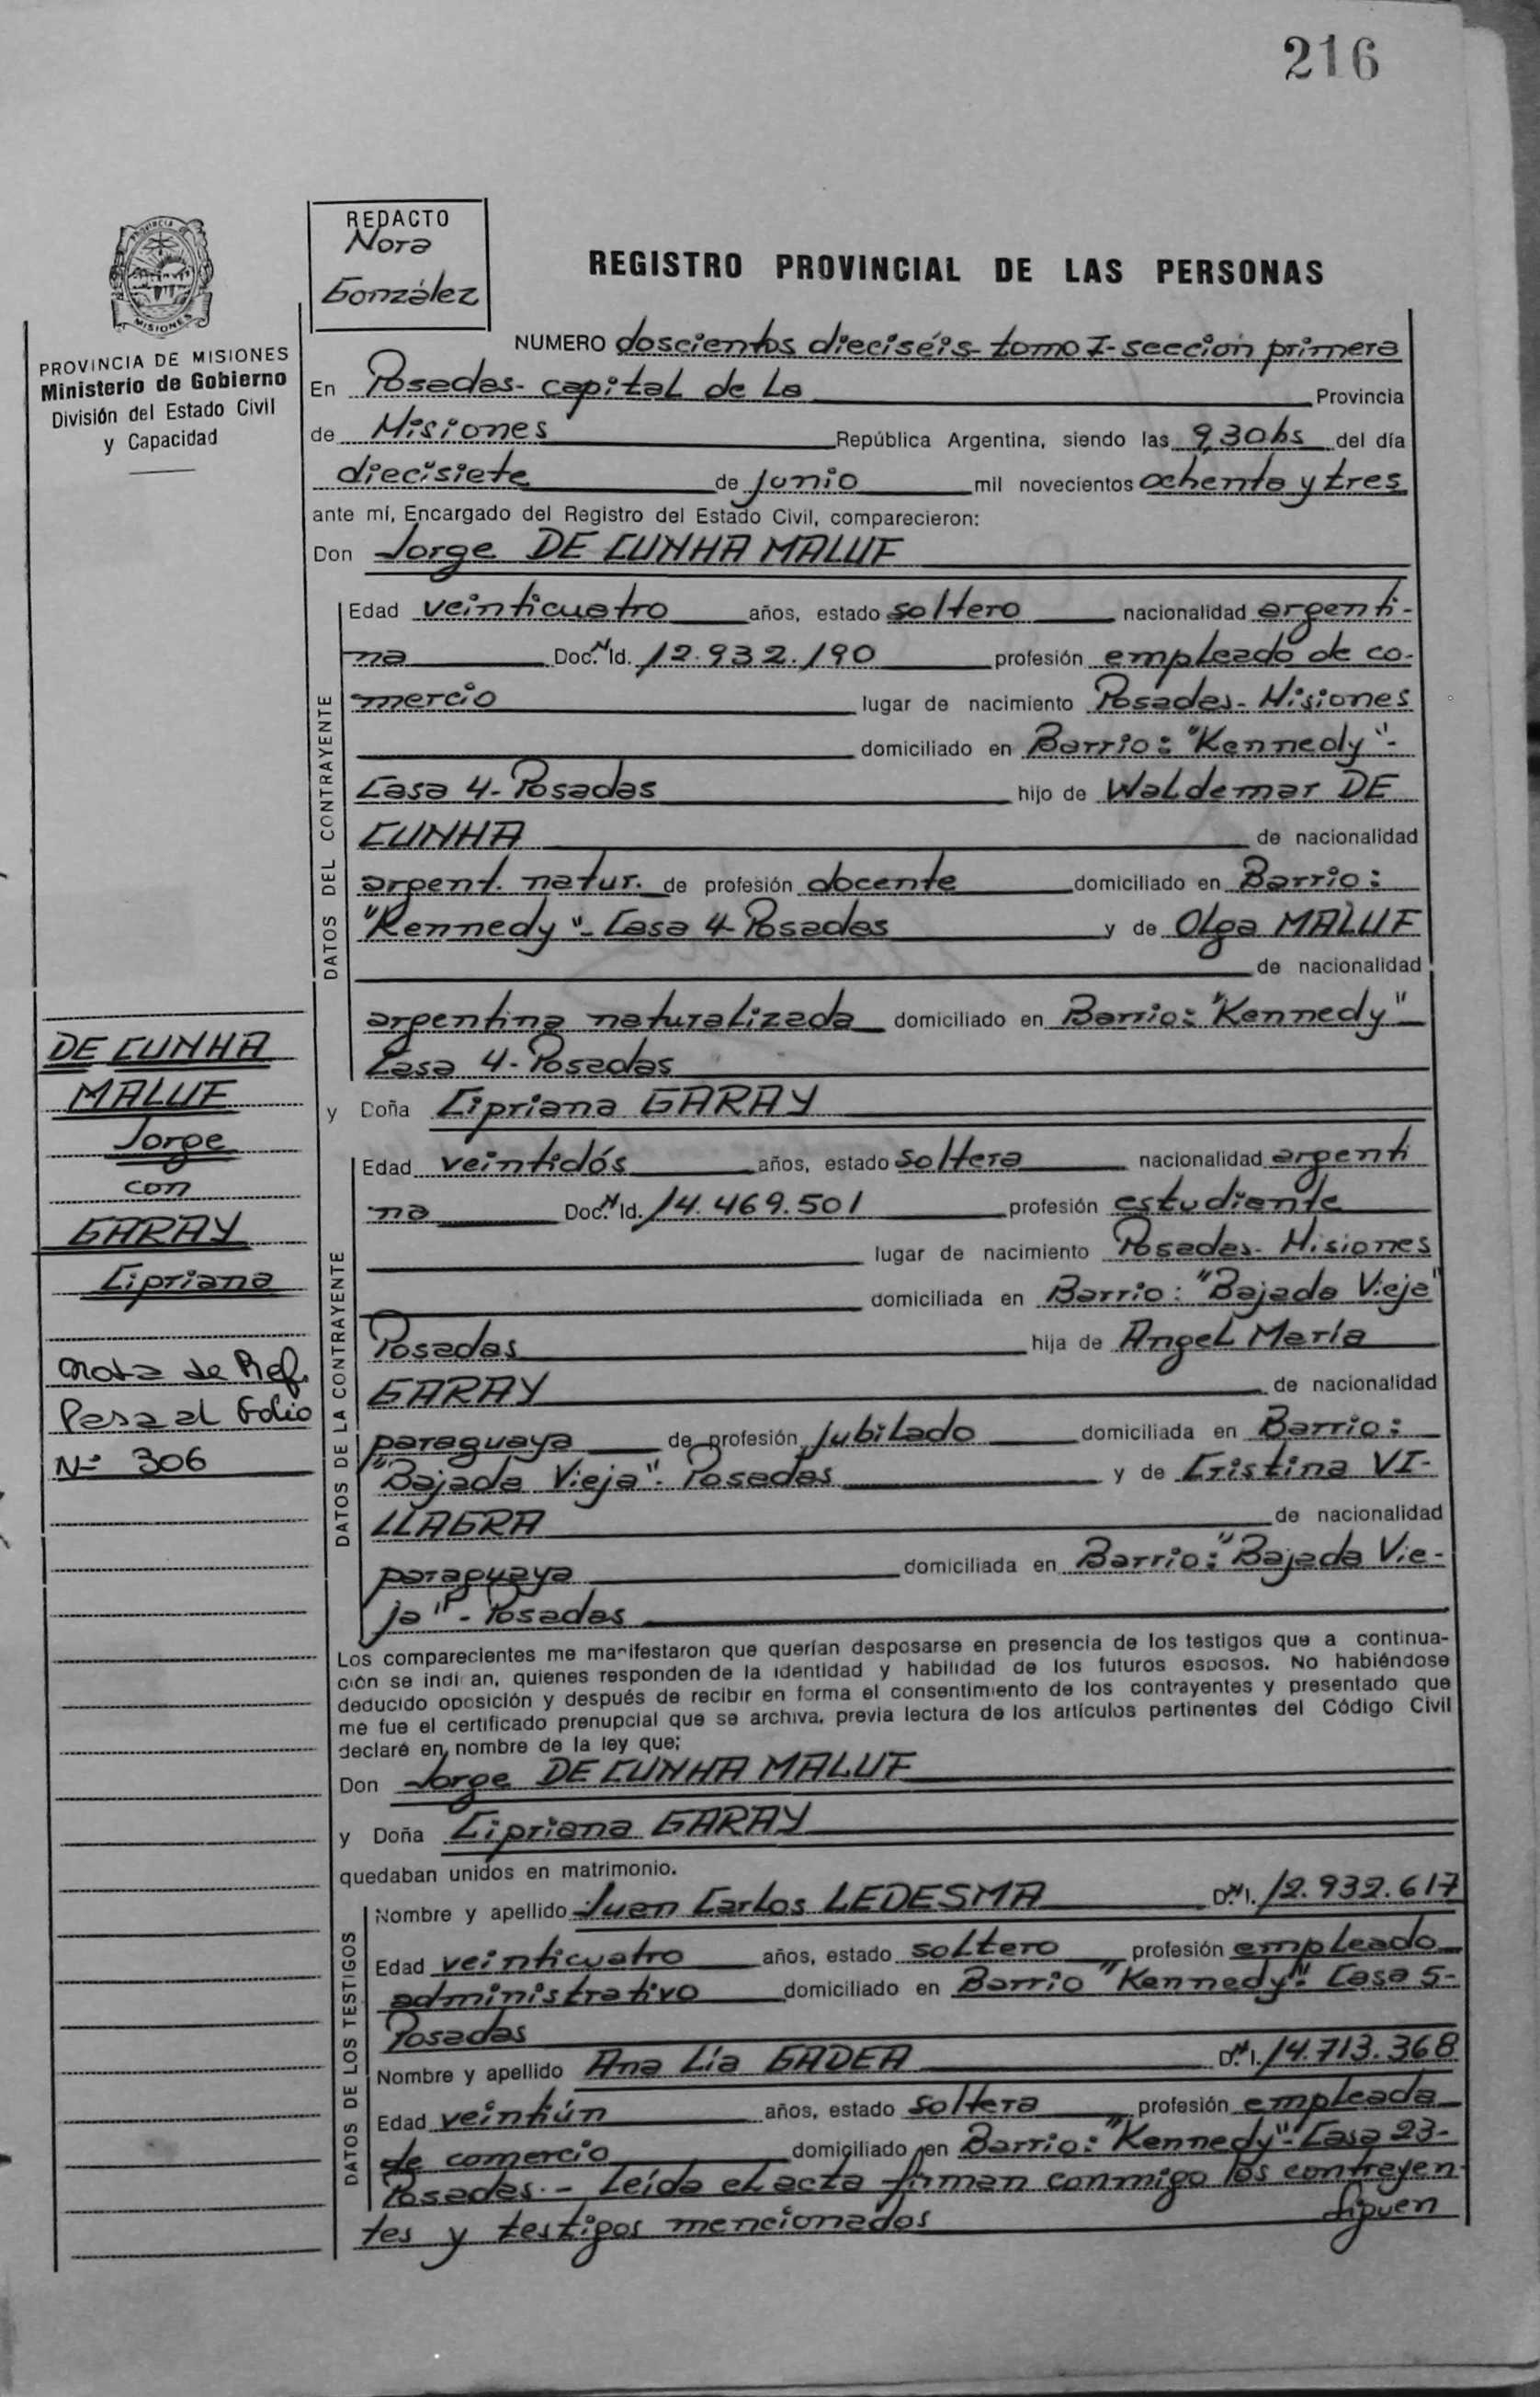 216
REDACTO
Nora
González
PROVINCIA DE MISIONES
MISIONES
REGISTRO PROVINCIAL DE LAS PERSONAS
PROVINCIA DE MISIONES
Ministerio de Gobierno
División del Estado Civil
y Capacidad
NUMERO doscientos dieciséis - tomo I - sección primera
En Posadas - capital de La Provincia
de Misiones República Argentina, siendo las 9,30 hs del día
diecisiete de junio mil novecientos ochenta y tres
ante mí, Encargado del Registro del Estado Civil, comparecieron:
Don Jorge DE CUNHA MALUF
DATOS DEL CONTRAYENTE
Edad veinticuatro años, estado soltero nacionalidad argenti-
na Doc. N Id. 12.932.190 profesión empleado de co-
mercio lugar de nacimiento Posadas - Misiones
domiciliado en Barrio: "Kennedy" -
Casa 4 - Posadas hijo de Waldemar DE
CUNHA de nacionalidad
argent. natur. de profesión docente domiciliado en Barrio:
"Kennedy" - Casa 4 - Posadas y de Olga MALUF
de nacionalidad
argentina naturalizada domiciliado en Barrio: "Kennedy"
Casa 4 - Posadas
y Doña Cipriana GARAY
DATOS DE LA CONTRAYENTE
Edad veintidós años, estado soltera nacionalidad argenti
na Doc. N Id. 14.469.501 profesión estudiante
lugar de nacimiento Posadas - Misiones
domiciliada en Barrio: "Bajada Vieja"
Posadas hija de Angel María
GARAY de nacionalidad
paraguaya de profesión jubilado domiciliada en Barrio:
"Bajada Vieja" - Posadas y de Cristina VI-
LLAGRA de nacionalidad
paraguaya domiciliada en Barrio: "Bajada Vie-
ja" - Posadas
DE CUNHA
MALUF
Jorge
con
GARAY
Cipriana
Nota de Ref.
Pasa al Folio
Nº 306
Los comparecientes me manifestaron que querían desposarse en presencia de los testigos que a continua-
ción se indi an, quienes responden de la identidad y habilidad de los futuros esposos. No habiéndose
deducido oposición y después de recibir en forma el consentimiento de los contrayentes y presentado que
me fue el certificado prenupcial que se archiva, previa lectura de los artículos pertinentes del Código Civil
declaré en nombre de la ley que;
Don Jorge DE CUNHA MALUF
y Doña Cipriana GARAY
quedaban unidos en matrimonio.
DATOS DE LOS TESTIGOS
Nombre y apellido Juan Carlos LEDESMA D.N.I. 12.932.617
Edad veinticuatro años, estado soltero profesión empleado
administrativo domiciliado en Barrio "Kennedy". Casa 5-
Posadas
Nombre y apellido Ana Lía GADEA D.N.I. 14.713.368
Edad veintiún años, estado soltera profesión empleada
de comercio domiciliado en Barrio: "Kennedy" - Casa 23-
Posadas. - Leída el acta firman conmigo los contrayen-
tes y testigos mencionados Siguen